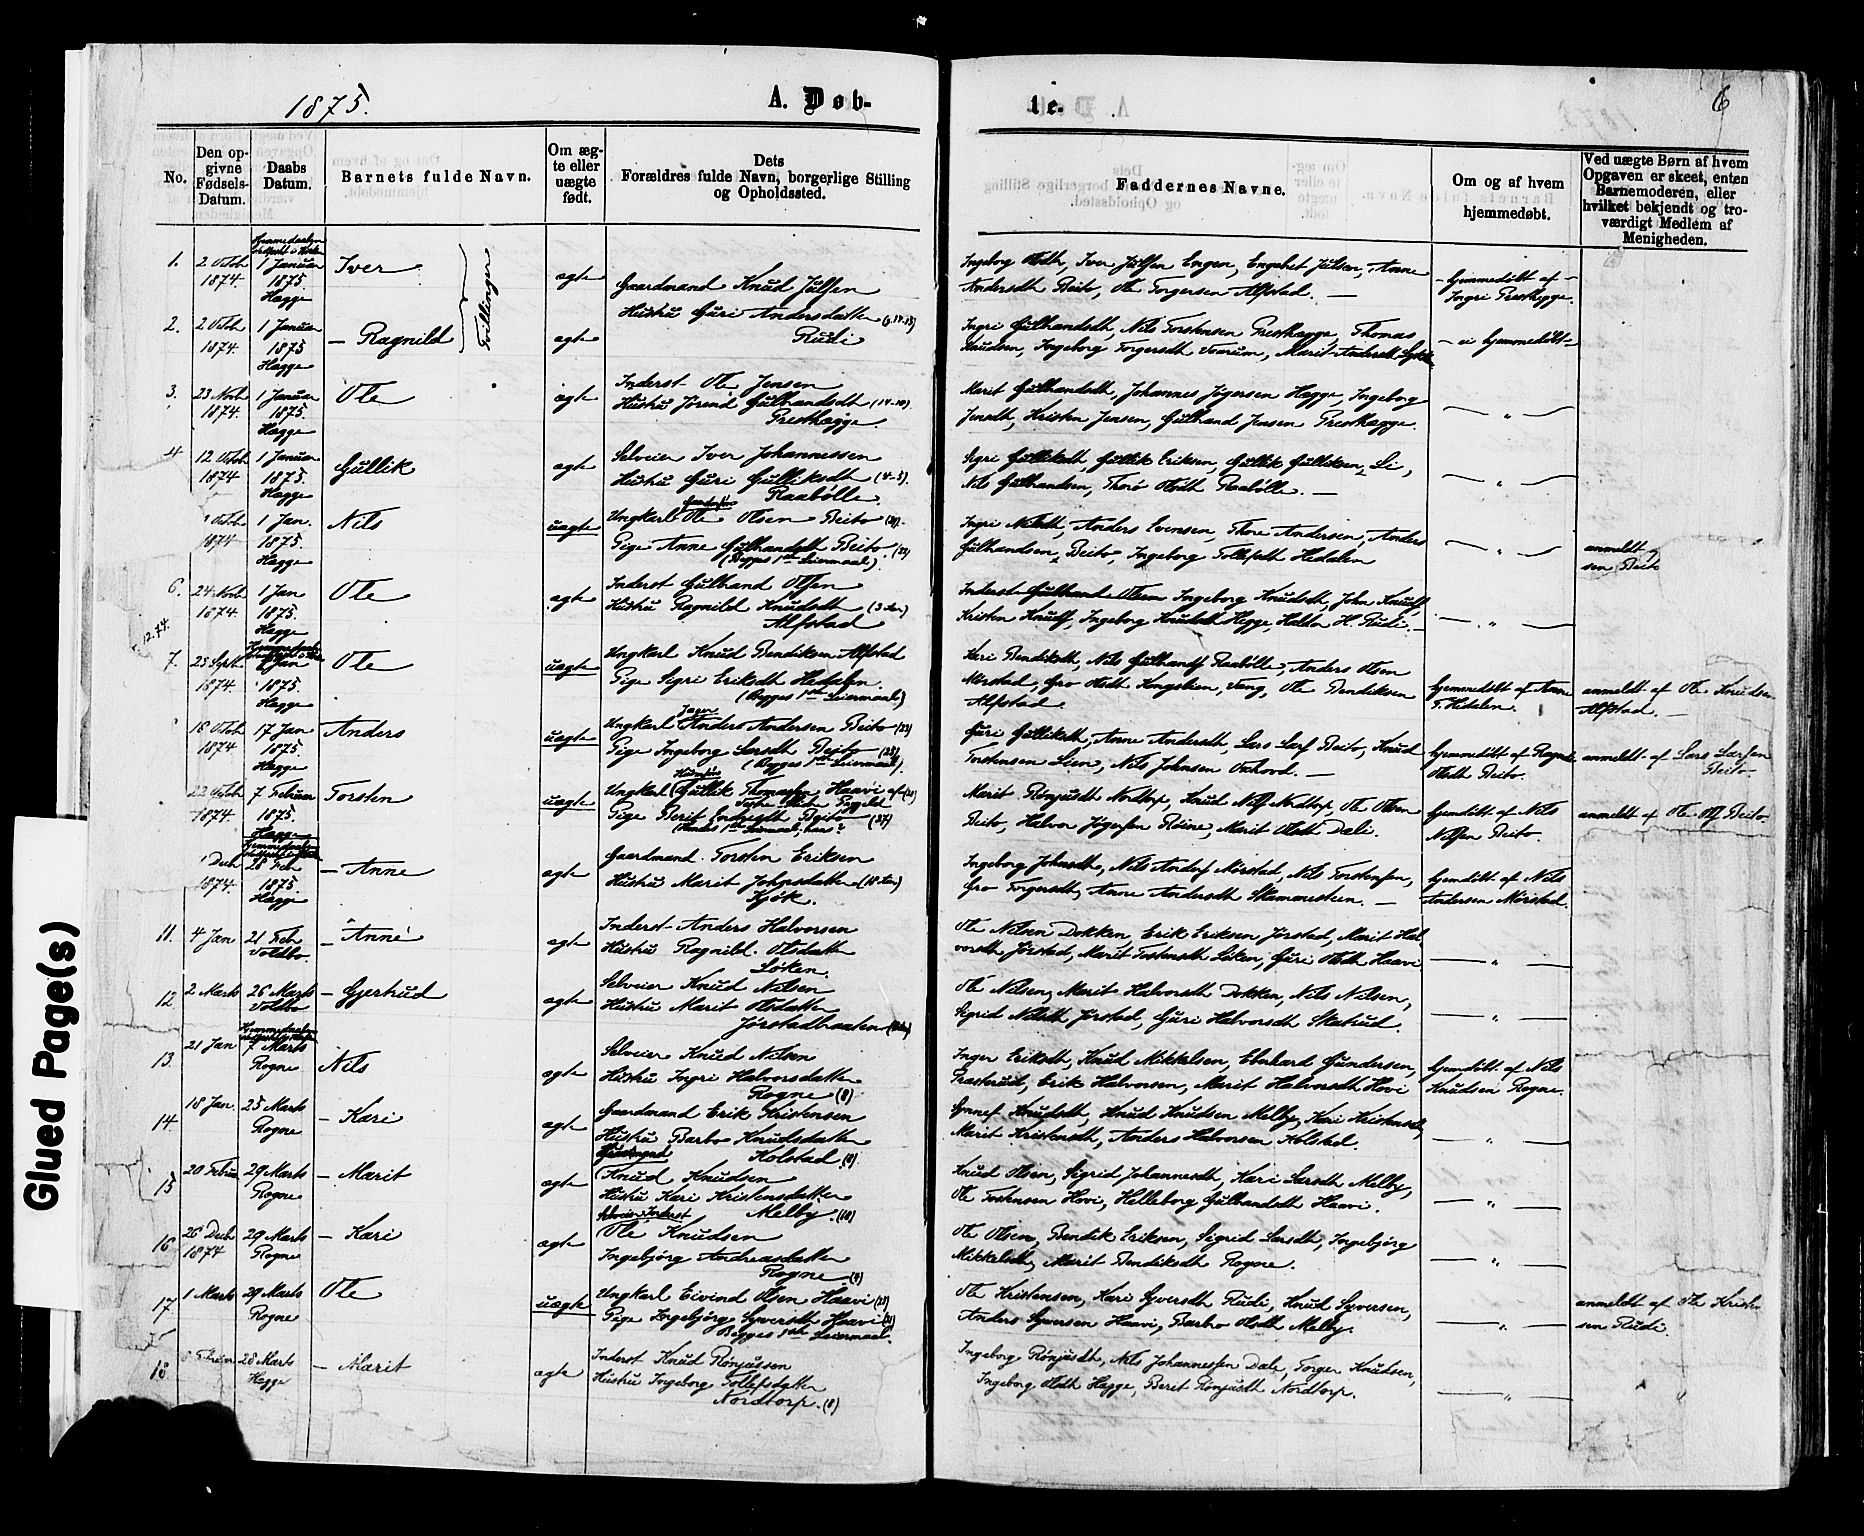 1875.
A. Døb-
te.
6
No.
Den opgivne Fødsels-Datum.
Daabs Datum.
Barnets fulde Navn.
Om ægte eller uægte født.
Dets Forældres fulde Navn, borgerlige Stilling og Opholdssted.
Faddernes Navne.
Om og af hvem hjemmedøbt.
Ved uægte Børn af hvem Opgaven er skeet, enten Barnemoderen, eller hvilket bekjendt og troværdigt Medlem af Menigheden.
1. 2 Octob 1874. 1 Januar 1875. Hægge Iver Tvillinger ægte
Gaardmand Knud Julsen
Hustru Guri Andersdatter
Rudi
Ingeborg Olsdth, Iver Julsen Engen, Engebret Julsen, Anne
Andersdth Beito, Ole Torgersen Alfstad. —
Hjemmedøbt af
Ingri Presthægge.
2. 2 Octob 1874. 1 Januar 1875 Hægge — Ragnild ægte
Ingri Gulhandsdth, Nils Torstensen Presthægge, Thomas
Knudsen, Ingeborg Torgersdth, Marit Andersdth
— ei hjemmedøbt —
3. 23 Novb 1874. 1 Januar 1875. Hægge Ole ægte
Inderst Ole Jensen
Hustru Jørend Gulhandsdth (14-10)
Presthægge.
Marit Gulhandsdth, Johannes Jøgersen Hægge, Ingeborg
Jensdth, Kristen Jensen, Gulhand Jensen Presthægge.
— „ —
4 12 Octob 1874 1 Januar 1875. Hægge Gullik ægte
Selveier Iver Johannessen
Hustru Guri Gulliksdth
Raabølle
Sigri Gulliksdth, Gullik Eriksen, Gullik Gulliksen Li,
Nils Gulhandsen, Thora Olsdth Raabølle. —
— „ —
Octob 1874 1 Jan. 1875. Hægge Nils uægte
Ungkarl Ole Olsen Beito
Pige Anne Gulhandsdth Beito
(Begges 1ste Leiermaal).
Ingri Nilsdth, Anders Evensen, Thore Andersen, Anders
Gulhandsen, Beito, Ingeborg Tollefsdth Hedalen
— „ —
anmeldt
sen Beito
6. 24 Novb 1874. 1 Jan 1875. Hægge Ole ægte
Inderst Gulhand Olsen
Hustru Ragnild Knudsdth
Alfstad
Inderst Gulhand Olsen Ingeborg Knudsdth, John Knuds.
Kristen Knuds., Ingeborg Knudsdth Hegge, Haldor H. Rudi. —
— „ —
12.74.
7. 23 Septb 1874. 1 Jan 1875. Hægge Ole uægte
Ungkarl Knud Bendiksen Alfstad
Pige Sigri Eriksdth Hedalen.
(Begges 1ste Leiermaal)
Kari Bendiksdth, Nils Gulhands. Raabølle, Anders Olsen
Mørstad, Gro Olsdth Kongslien, Vang, Ole Bendiksen
Alfstad.
hjemmedøbt af Anne
T. Hedalen.
anmeldt af Ole Knudsen
Alfstad. —
18 Octob 1874 17 Jan 1875 Hægge Anders uægte
Ungkarl Anders Andersen Beito (22)
Pige Ingeborg Larsdth Beito (25)
(Begges 1ste Leiermaal).
Guri Gulliksdth, Anne Andersdth, Lars Lars. Beito, Knud
Torstensen Lien, Nils Johnsen Oxhovd. —
hjemmedøbt af Ragne
Olsdth Beito.
anmeldt af Lars Larsen
Beito
22 Octob 1874. 7 Februar 1875. Hægge Torsten uægte
Ungkarl Gullik Thomassen Haavi
Pige Berit Endresdth Beito (27)
Marit Rønjusdth Nordtorp, Knud Nils. Nordtorp, Ole Olsen
Beito, Halvor Jøgersen Røine, Marit Olsdth Dale.
hjemdøbt af Nils
Nilsen Beito.
anmeldt af Ole Ols. Beito
1 Decb 1874. 28 Feb 1875. Hægge — Anne ægte
Gaardmand Torsten Eriksen
Hustru Marit Johnsdatter
Kjøk.
Ingeborg Johnsdth, Nils Anders. Mørstad, Nils Torstensen,
Gro Torgersdth, Anne Andersdth Skammestein. —
hjemdøbt af Nils
Andersen Mørstad.
11. 4 Jan 21 Feb Voldbo. — Anne ægte
Inderst Anders Halvorsen
Hustru Ragnild Olsdatter
Løken.
Ole Nilsen Dokken, Erik Eriksen Jørstad, Marit Hal
vorsdth Jørstad, Marit Torstensdth Løken, Guri Olsdth Haavi
— „ —
12 2 Marts 26 Marts Voldbo — Gjertrud ægte
Selveier Knud Nilsen
Hustru Marit Olsdatter
Jørstadbraaten
Ole Nilsen, Marit Halvorsdth Dokken, Nils Nilsen,
Sigrid Nilsdth Jørstad, Guri Halvorsdth Skatrud.
— „ —
13 21 Jan 7 Marts Rogne Nils ægte
Selveier Knud Nilsen
Hustru Ingri Halvorsdatter
Rogne (8)
Inger Eriksdth, Knud Mikkelsen, Eberhard Gundersen,
Prasterud, Erik Halvorsen, Marit Halvorsdth Hovi
hjemdøbt af Nils
Knudsen Rogne.
14 18 Jan. 25 Marts Rogne — Kari ægte
Gaardmand Erik Kristensen
Hustru Barbo Knudsdatter
Kolstad (8)
Synnef Knudsdth, Knud Knudsen Melby, Kari Kristensdth,
Marit Kristensdth, Anders Halvorsen Kolstad.
— „ —
15 20 Februar 29 Marts Rogne — Marit ægte
Gaardmand
Knud Knudsen
Hustru Kari Kristensdatter
Melby. (10)
Knud Olsen, Sigrid Johannesdth, Kari Larsdth Melby,
Ole Torstensen Hovi, Helleborg Gulhandsdth Haavi.
— „ —
16 26 Decb 1874 29 Marts Rogne — Kari ægte
Selveier Inderst
Ole Knudsen
Ingebjørg Andreasdatter
Rogne (8)
Ole Olsen, Bendik Eriksen, Sigrid Larsdth, Ingebjørg
Mikkelsdth, Marit Bendiksdth Rogne.
— „ —
17 1 Marts 29 Marts Rogne Ole uægte
Ungkarl Eivind Olsen Haavi
Pige Ingebjørg Syversdth Haavi
Begges 1ste Leiermaal.
Ole Kristensen, Kari Syversdth Rudi, Knud Syversen,
Anders Syversen Haavi, Barbro Olsdth Melby.
— „ —
anmeldt af Ole Kristen
sen Rudi.
18 Februar 28 Marts Hægge — Marit ægte
Inderst Knud Rønjussen
Hustru Ingeborg Tollefsdatter
Nordtorp. (8)
Ingeborg Rønjusdth, Nils Johannessen Dale, Torger Knudsen,
Ingeborg Olsdth Hægge, Berit Rønjusdth Nordtorp.
— „ —
Glued Page(s)